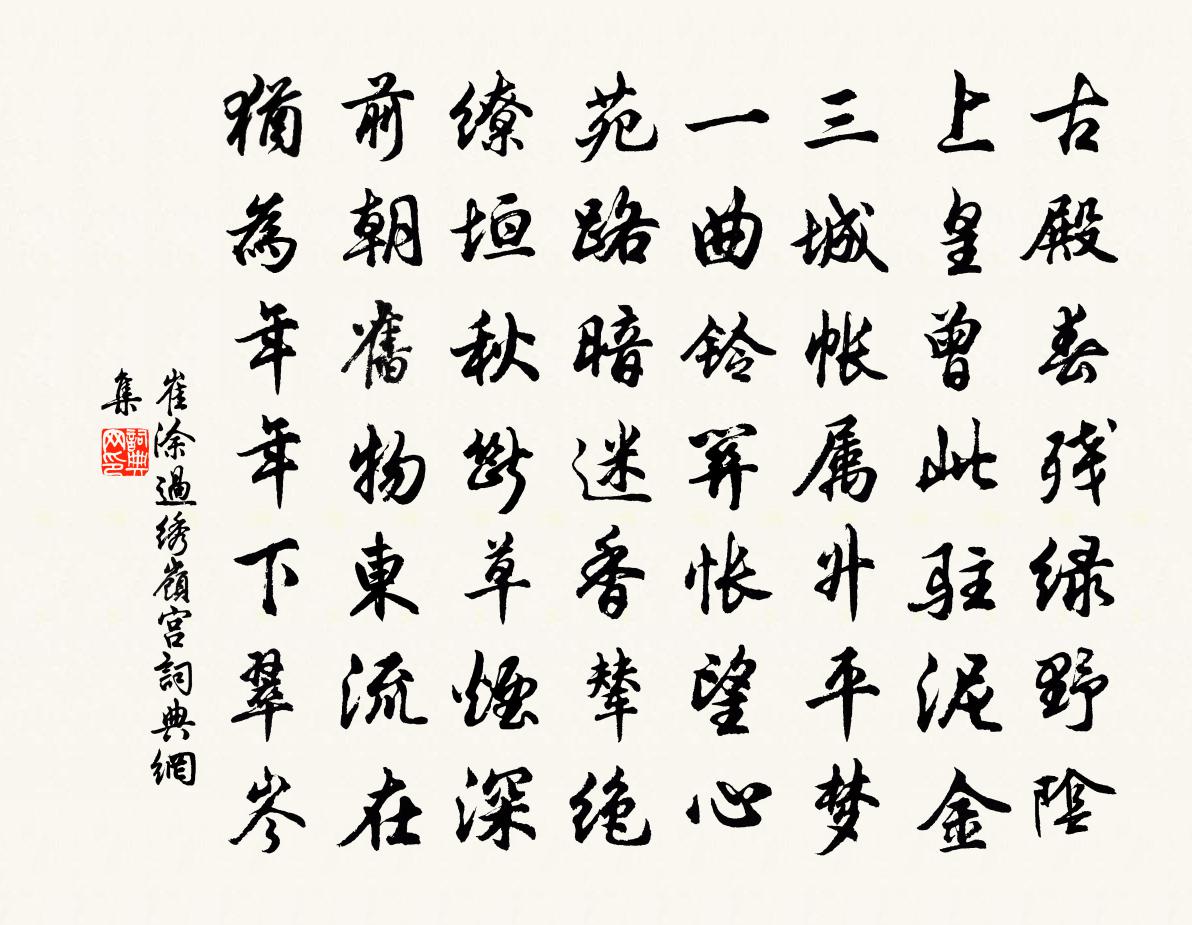 古殿春残绿野陰
上皇曾此駐泥金
三城帐属升平梦
一曲鈴関怅望心
苑路暗迷香輦绝
缭垣秋断草煙深
前朝舊物東流在
猶為年年下翠岑
崔涂過绣嶺宫詞典網
集
詞典
网印